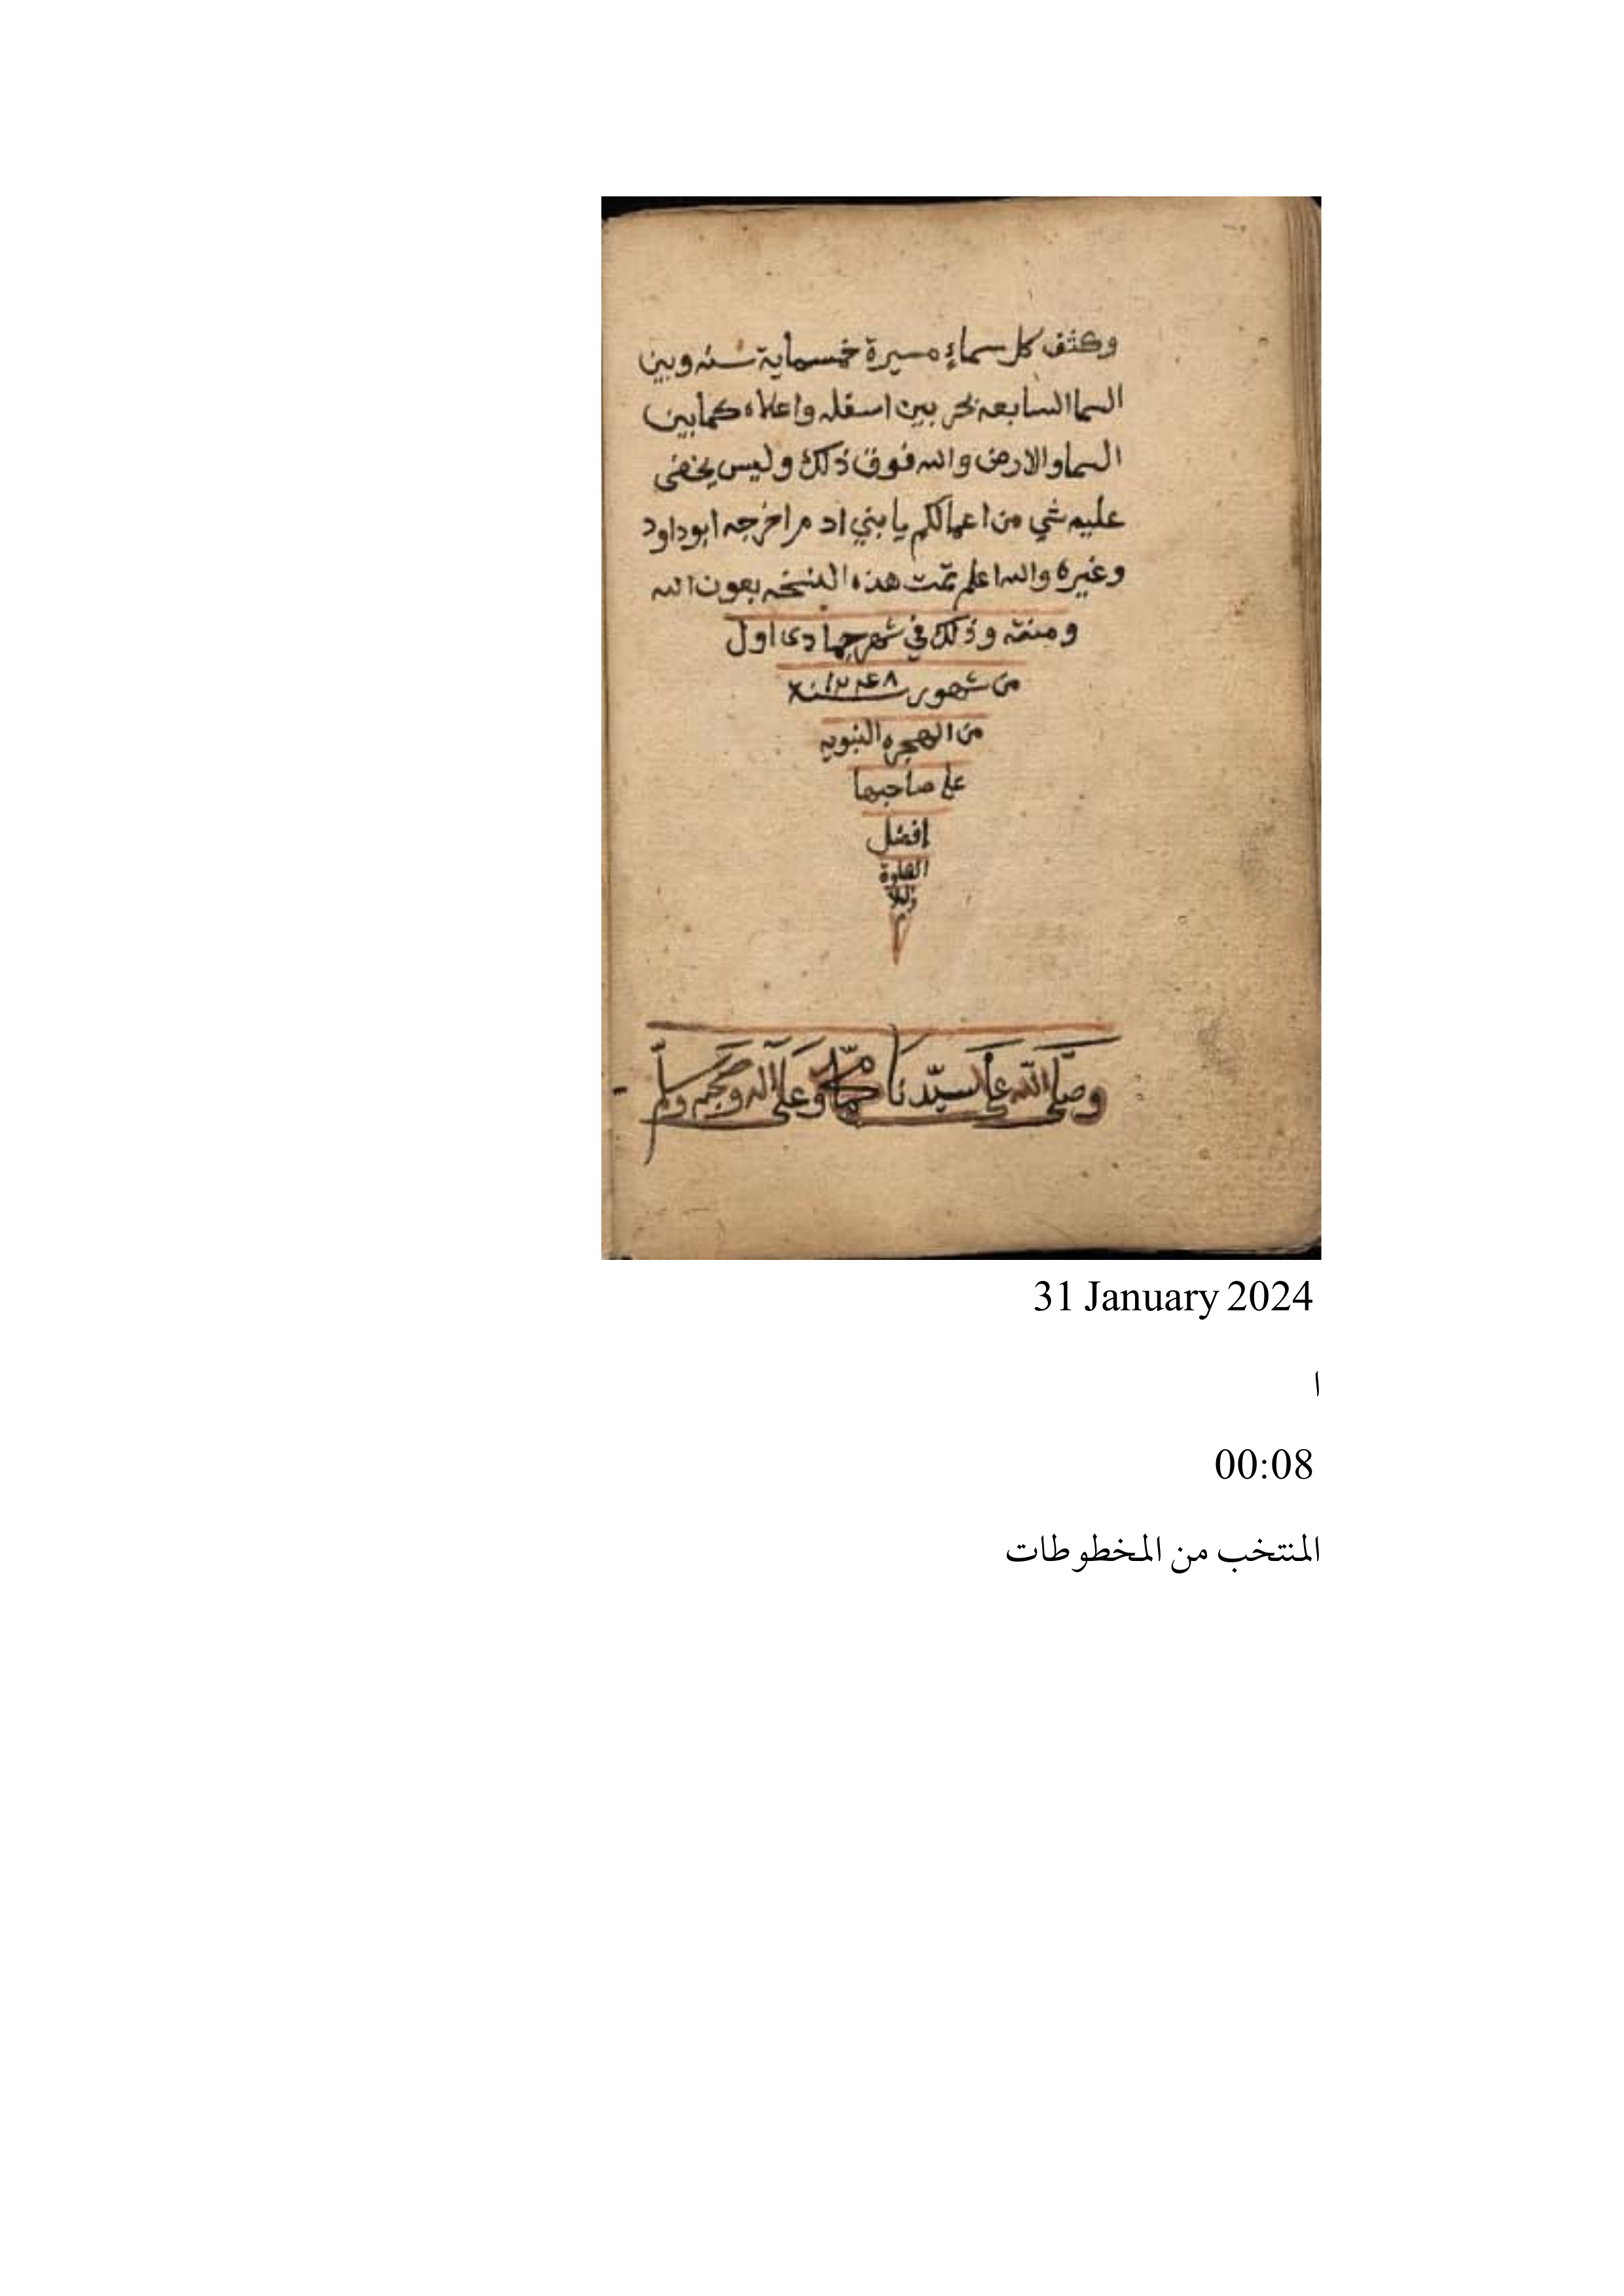 وكثف كل سماء مسيرة خمسماية سنه وبين
السما السابعه بحر بين اسفله واعلاه كما بين
السما والارض والله فوق ذلك وليس يخفى
عليه شي من اعمالكم يا بني ادم اخرجه ابو داود
وغيره والله اعلم تمت هذه النسخه بعون الله
ومنته وذلك في شهر جمادى اول
من شهور سنة ١٢٤٨
من الهجره النبويه
على صاحبها
افضل
الصلوة
وصلى الله على سيّدنا محمّد وعلى اله وصحبه وسلّم
31 January 2024
ا
00:08
المنتخب من المخطوطات